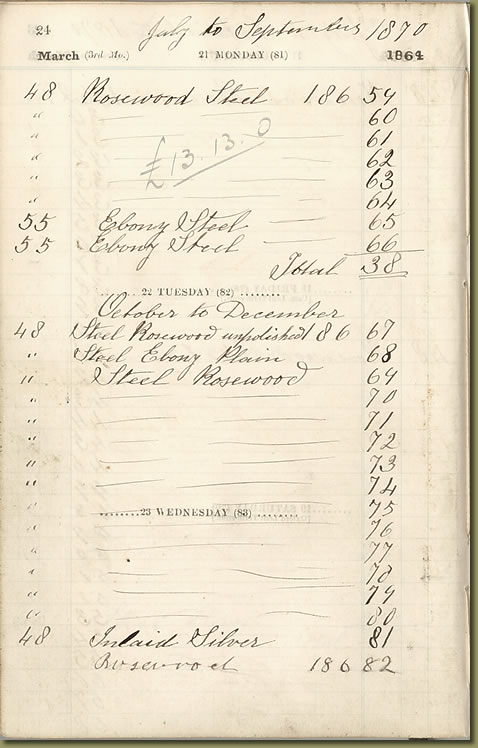 24 July to September 1870
March (3rd Mo.) 21 MONDAY (81) 1864
48 Rosewood Steel 186 59
" 60
" 61
£13.13.0
" 62
" 63
" 64
55 Ebony Steel 65
55 Ebony Steel 66
Total 38
22 TUESDAY (82)
October to December
48 Steel Rosewood unpolished 186 67
" Steel Ebony Plain 68
" Steel Rosewood 69
" 70
" 71
" 72
" 73
" 74
" 75
23 WEDNESDAY (83)
" 76
" 77
" 78
" 79
" 80
48 Inlaid Silver 81
Rosewood 186 82